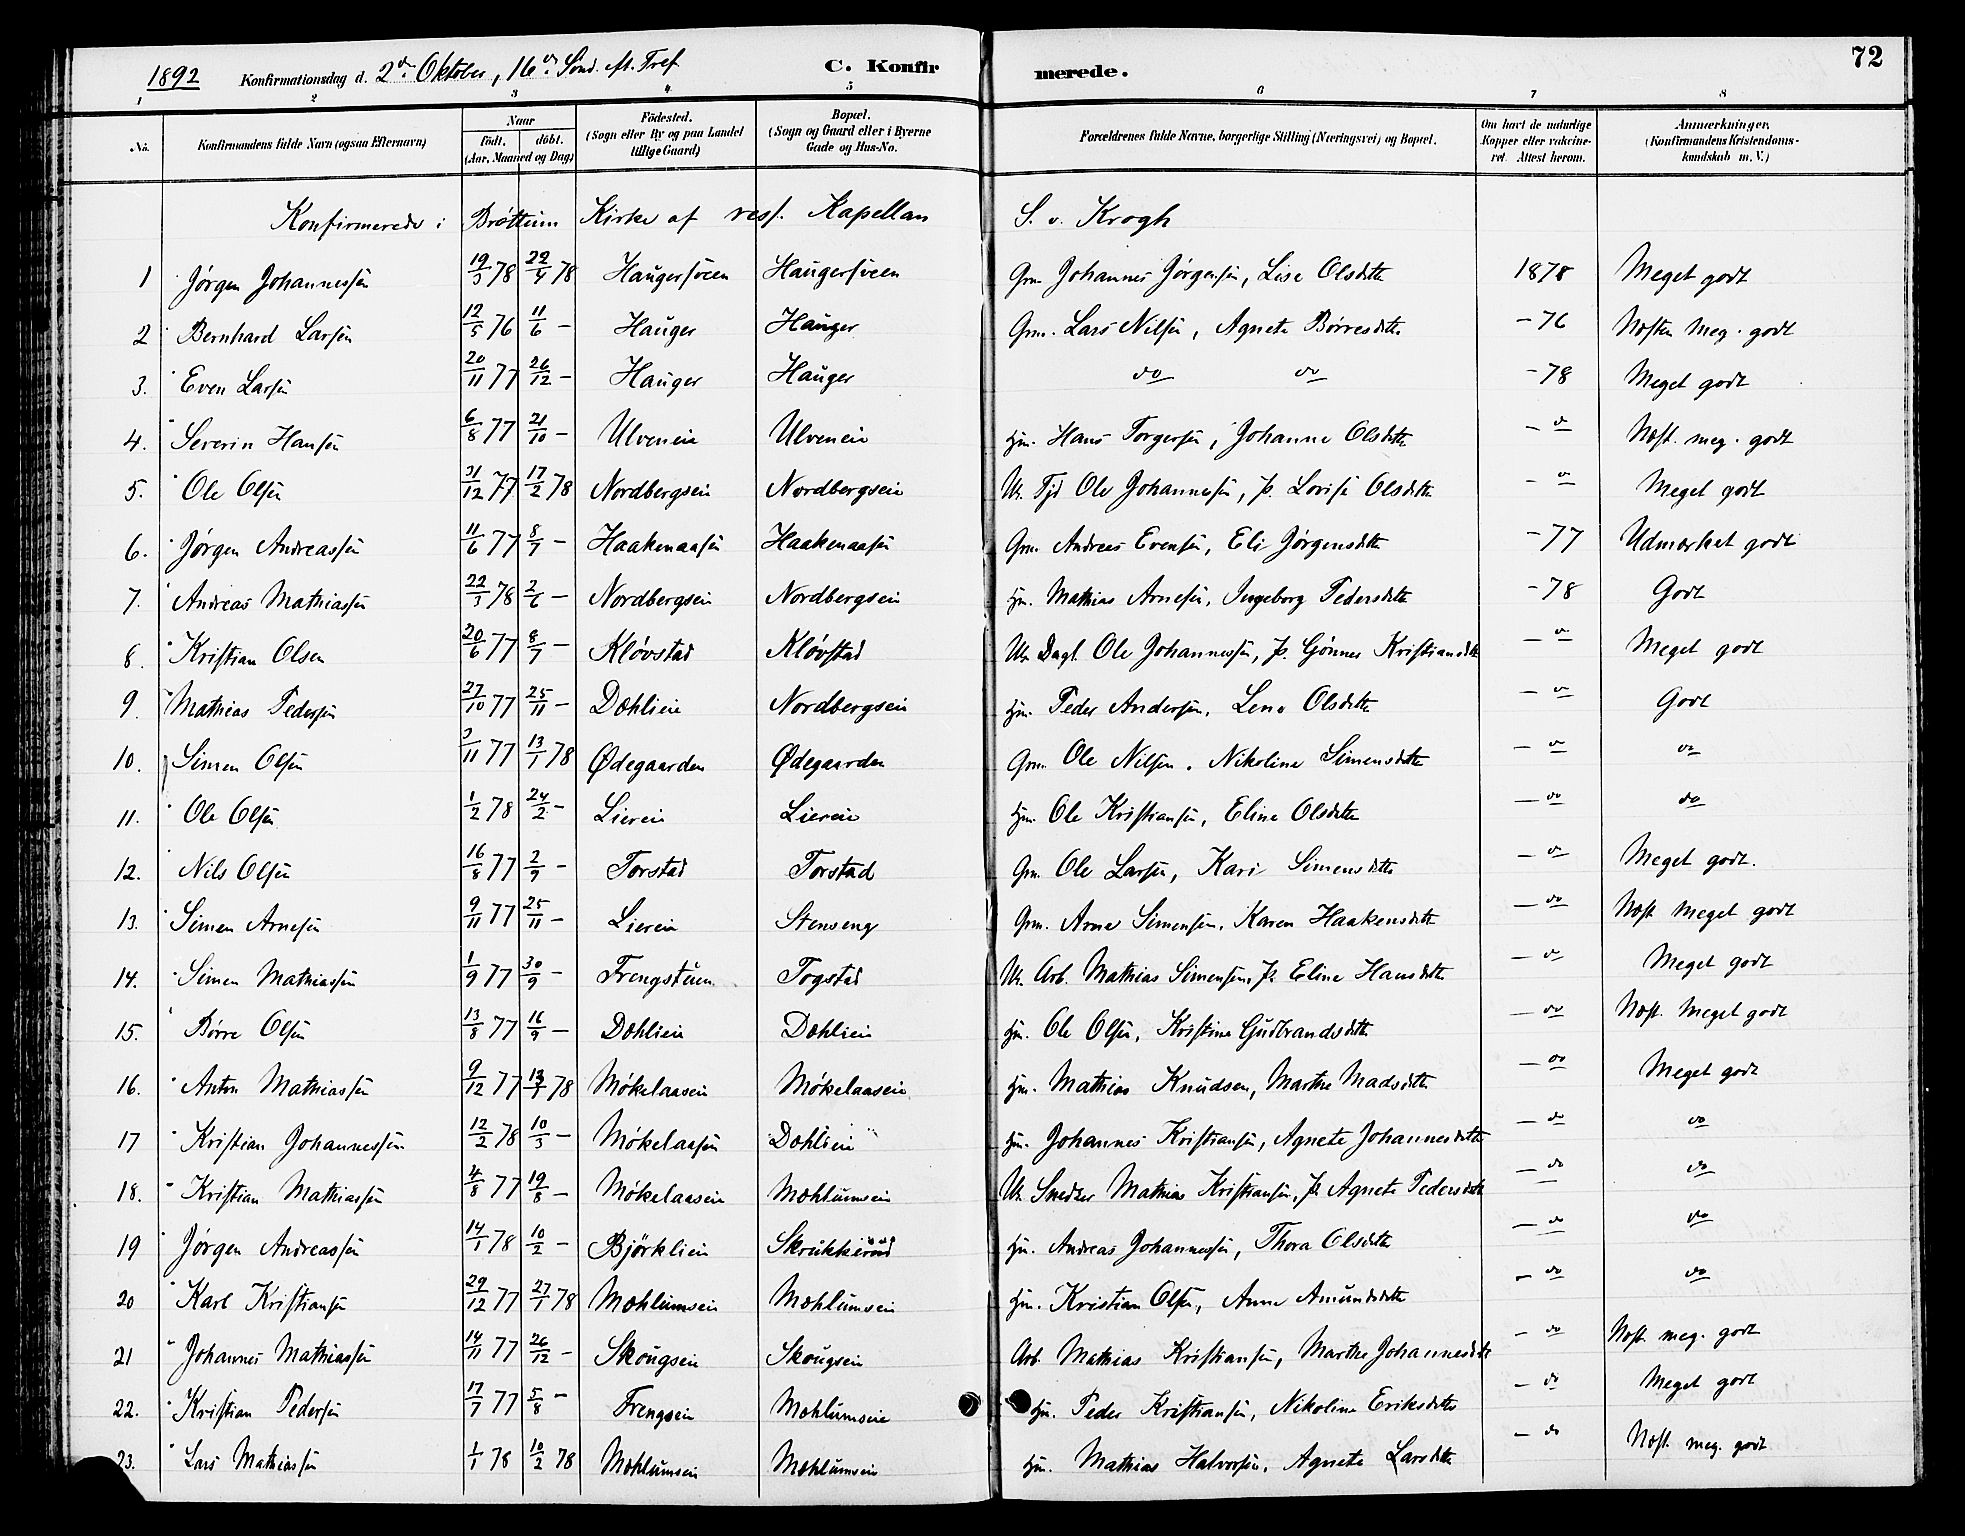 1892 Konfirmationsdag d. 2den Oktober, 16de Sönd. eft. Tref C. Konfirmerede. 72
1 2 3 4 5 6 7 8
No. Konfirmandens fulde Navn (ogsaa Efternavn) Naar födt. döbt. (Aar, Maaned og Dag) Födested. (Sogn eller By og paa Landet tillige Gaard) Bopæl. (Sogn og Gaard eller i Byerne Gade og Hus-No. Forældrenes fulde Navne, borgerlige Stilling (Næringsvei) og Bopæl. Om havt de naturlige Kopper eller vakcineret. Attest herom. Anmærkninger. (Konfirmandens Kristendomskundskab m. V.)
Konfirmerede i Brøttum Kirke af ress. Kapellan S. v. Krogh
1 Jørgen Johannessen 19/3 78 22/4 78 Haugersveen Haugersveen Grm. Johannes Jørgensen, Lise Olsdttr 1878 Meget godt
2 Bernhard Larsen 12/5 76 11/6 — Hauger Hauger Grm. Lars Nilsen, Agnete Børresdttr — 76 Næsten meg. godt
3. Even Larsen 20/11 77 26/12 — Hauger Hauger do do — 78 Meget godt
4. Severin Hansen 6/8 77 21/10 — Ulveneie Ulveneie Hm. Hans Torgersen, Johanne Olsdttr — do Næst. meg. godt
5. Ole Olsen 31/12 77 17/2 78 Nordbergseie Nordbergseie Uk. Tjd Ole Johannesen, P. Lovise Olsdttr — do Meget godt
6. Jørgen Andreassen 11/6 77 8/7 — Haakenaasen Haakenaasen Grm. Andreas Evensen, Eli Jørgensdttr — 77 Udmærket godt
7. Andreas Mathiassen 22/3 78 2/6 — Nordbergseie Nordbergseie Hm. Mathias Arnesen, Ingeborg Pedersdttr — 78 Godt
8. Kristian Olsen 20/6 77 8/7 — Kløvstad Kløvstad Uk Dagl. Ole Johannessen, P. Gønner Kristiansdttr — do Meget godt
9. Mathias Pedersen 27/10 77 25/11 — Dæhlieie Nordbergseie Hm. Peder Andersen, Lene Olsdttr — do Godt
10. Simen Olsen 3/11 77 13/1 78 Ødegaarden Ødegaarden Grm. Ole Nilsen, Nikoline Simensdttr — do do
11. Ole Olsen 1/2 78 24/2 — Liereie Liereie Hm. Ole Kristiansen, Eline Olsdttr — do do
12. Nils Olsen 16/8 77 2/9 — Torstad Torstad Grm. Ole Larsen, Kari Simensdttr — do Meget godt.
13. Simen Arnesen 9/11 77 25/11 — Liereie Stenseng Grm. Arne Simensen, Karen Haakensdttr — do Næst meget godt
14. Simen Mathiassen 1/9 77 30/9 — Frengstuen Togstad Uk. Arb. Mathias Simensen, P. Eline Hansdttr — do Meget godt
15. Børre Olsen 13/8 77 16/9 — Dæhlieie Dæhlieie Hm. Ole Olsen, Kristine Gudbrandsdttr — do Næst. Meget godt
16. Anton Mathiassen 9/12 77 13/1 78 Mökelaaseie Mökelaaseie Hm. Mathias Knudsen, Marthe Madsdttr — do Meget godt
17 Kristian Johannessen 12/2 78 10/3 — Mökelaasen Dæhlieie Hm. Johannes Kristiansen, Agnete Johannesdttr — do do
18. Kristian Mathiassen 4/8 77 19/8 — Mökelaaseie Mæhlumseie Uk Snedker Mathias Kristiansen, P. Agnete Pedersdttr — do do
19 Jørgen Andreassen 14/1 78 10/2 — Björklieie Skrukkerud Hm. Andreas Johannessen, Thora Olsdttr — do do
20 Karl Kristiansen 29/12 77 27/1 78 Mæhlumseie Mæhlumseie Hm. Kristian Olsen, Anne Amundsdttr — do do
21 Johannes Mathiassen 14/11 77 26/12 — Skougseie Skougseie Arb. Mathias Kristiansen, Marthe Johannesdttr — do Næst. meg. godt
22. Kristian Pedersen 17/7 77 5/8 — Frengseie Mæhlumseie Hm. Peder Kristiansen, Nikoline Eriksdttr — do Meget godt
23. Lars Mathiassen 1/1 78 10/2 78 Mæhlumseie Mæhlumseie Hm. Mathias Halvorsen, Agnete Larsdttr — do Næst. meg. godt